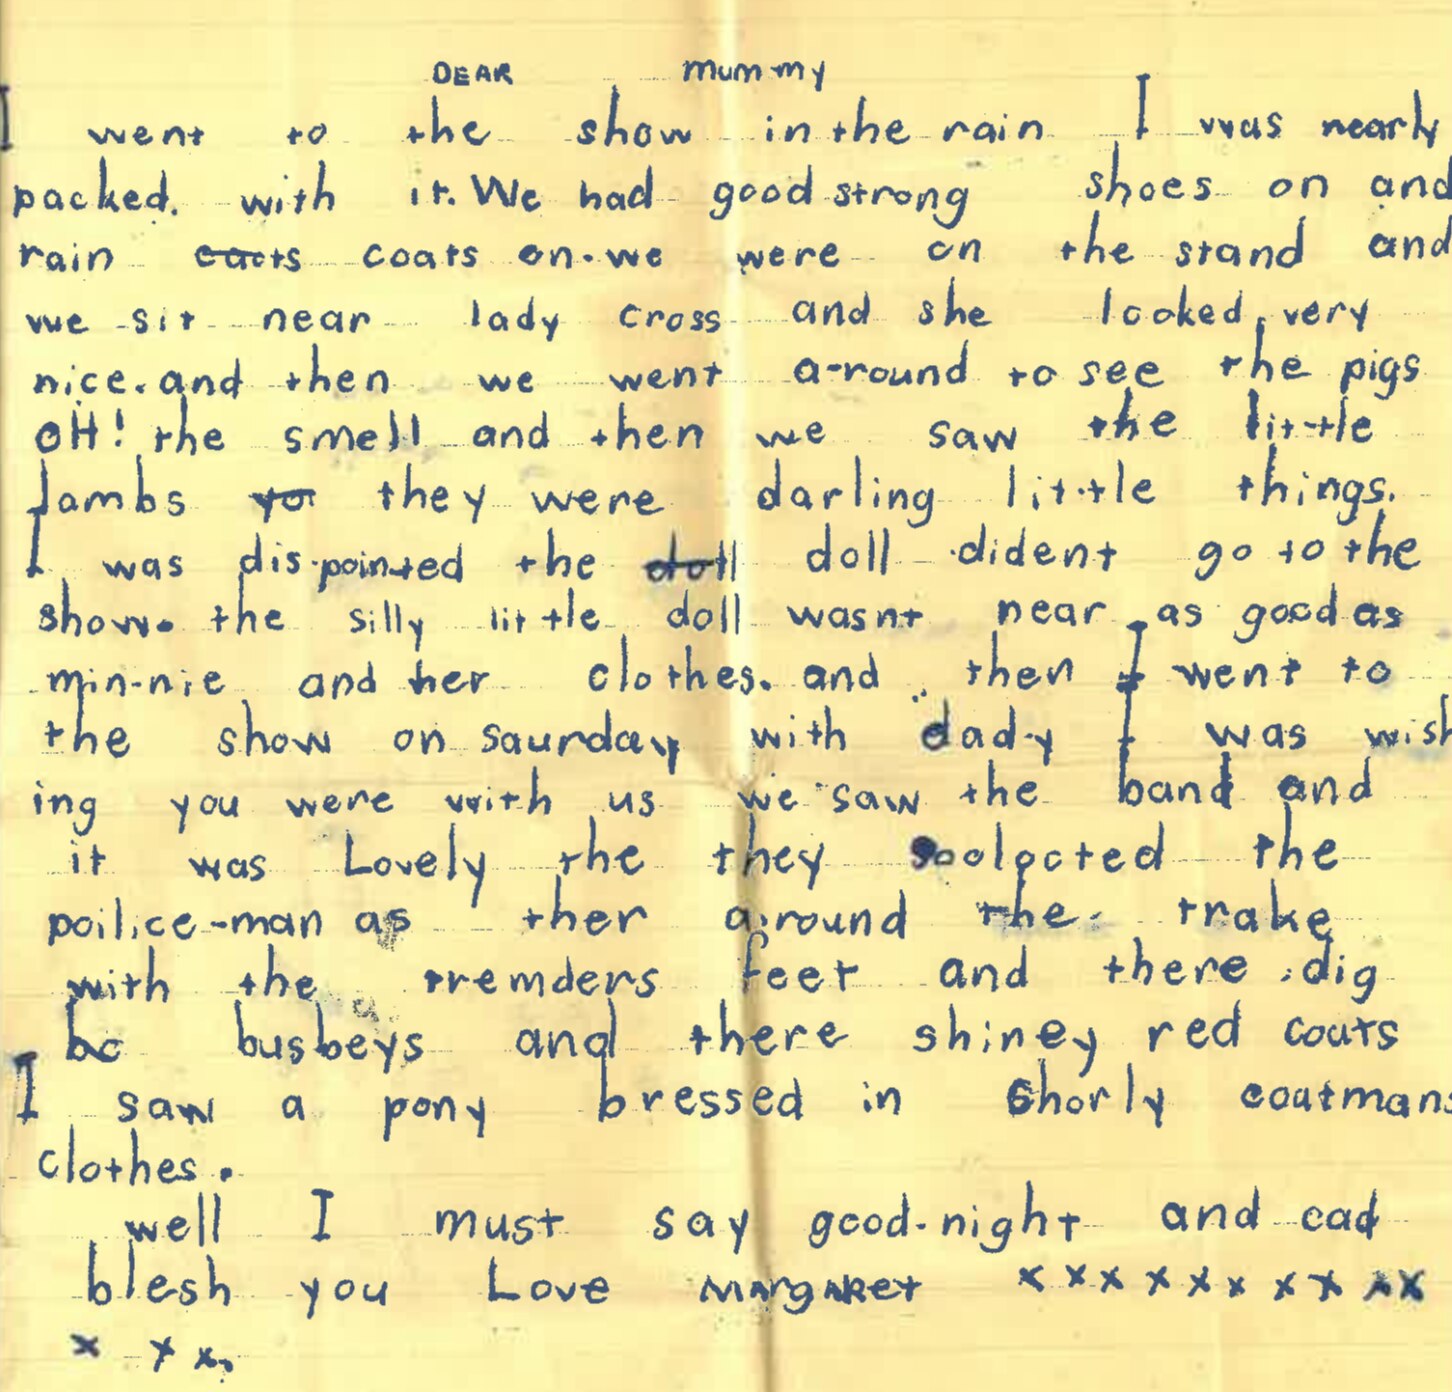 DEAR mummy
I went to the show in the rain I was nearly
packed. with it. We had good strong shoes on and
rain cacts coats on. we were on the stand and
we sit near lady cross and she looked very
nice. and then we went a-round to see the pigs
oH! the smell and then we saw the lit-tle
lambs yor they were darling lit-tle things.
I was dis-pointed the doll doll dident go to the
show. the silly lit tle doll wasnt near as good as
min-nie and her clothes. and then I went to
the show on saurday with dad-y I was wish
ing you were with us we saw the band and
it was Lovely the they soolocted the
poilice-man as ther a-round the trake
with the tremders feet and there dig
bo busbeys and there shiney red coats
I saw a pony bressed in Ghorly coatmans
clothes.
well I must say good-night and cad
blesh you Love MARgARet x x x x x x x x x x
x x x,